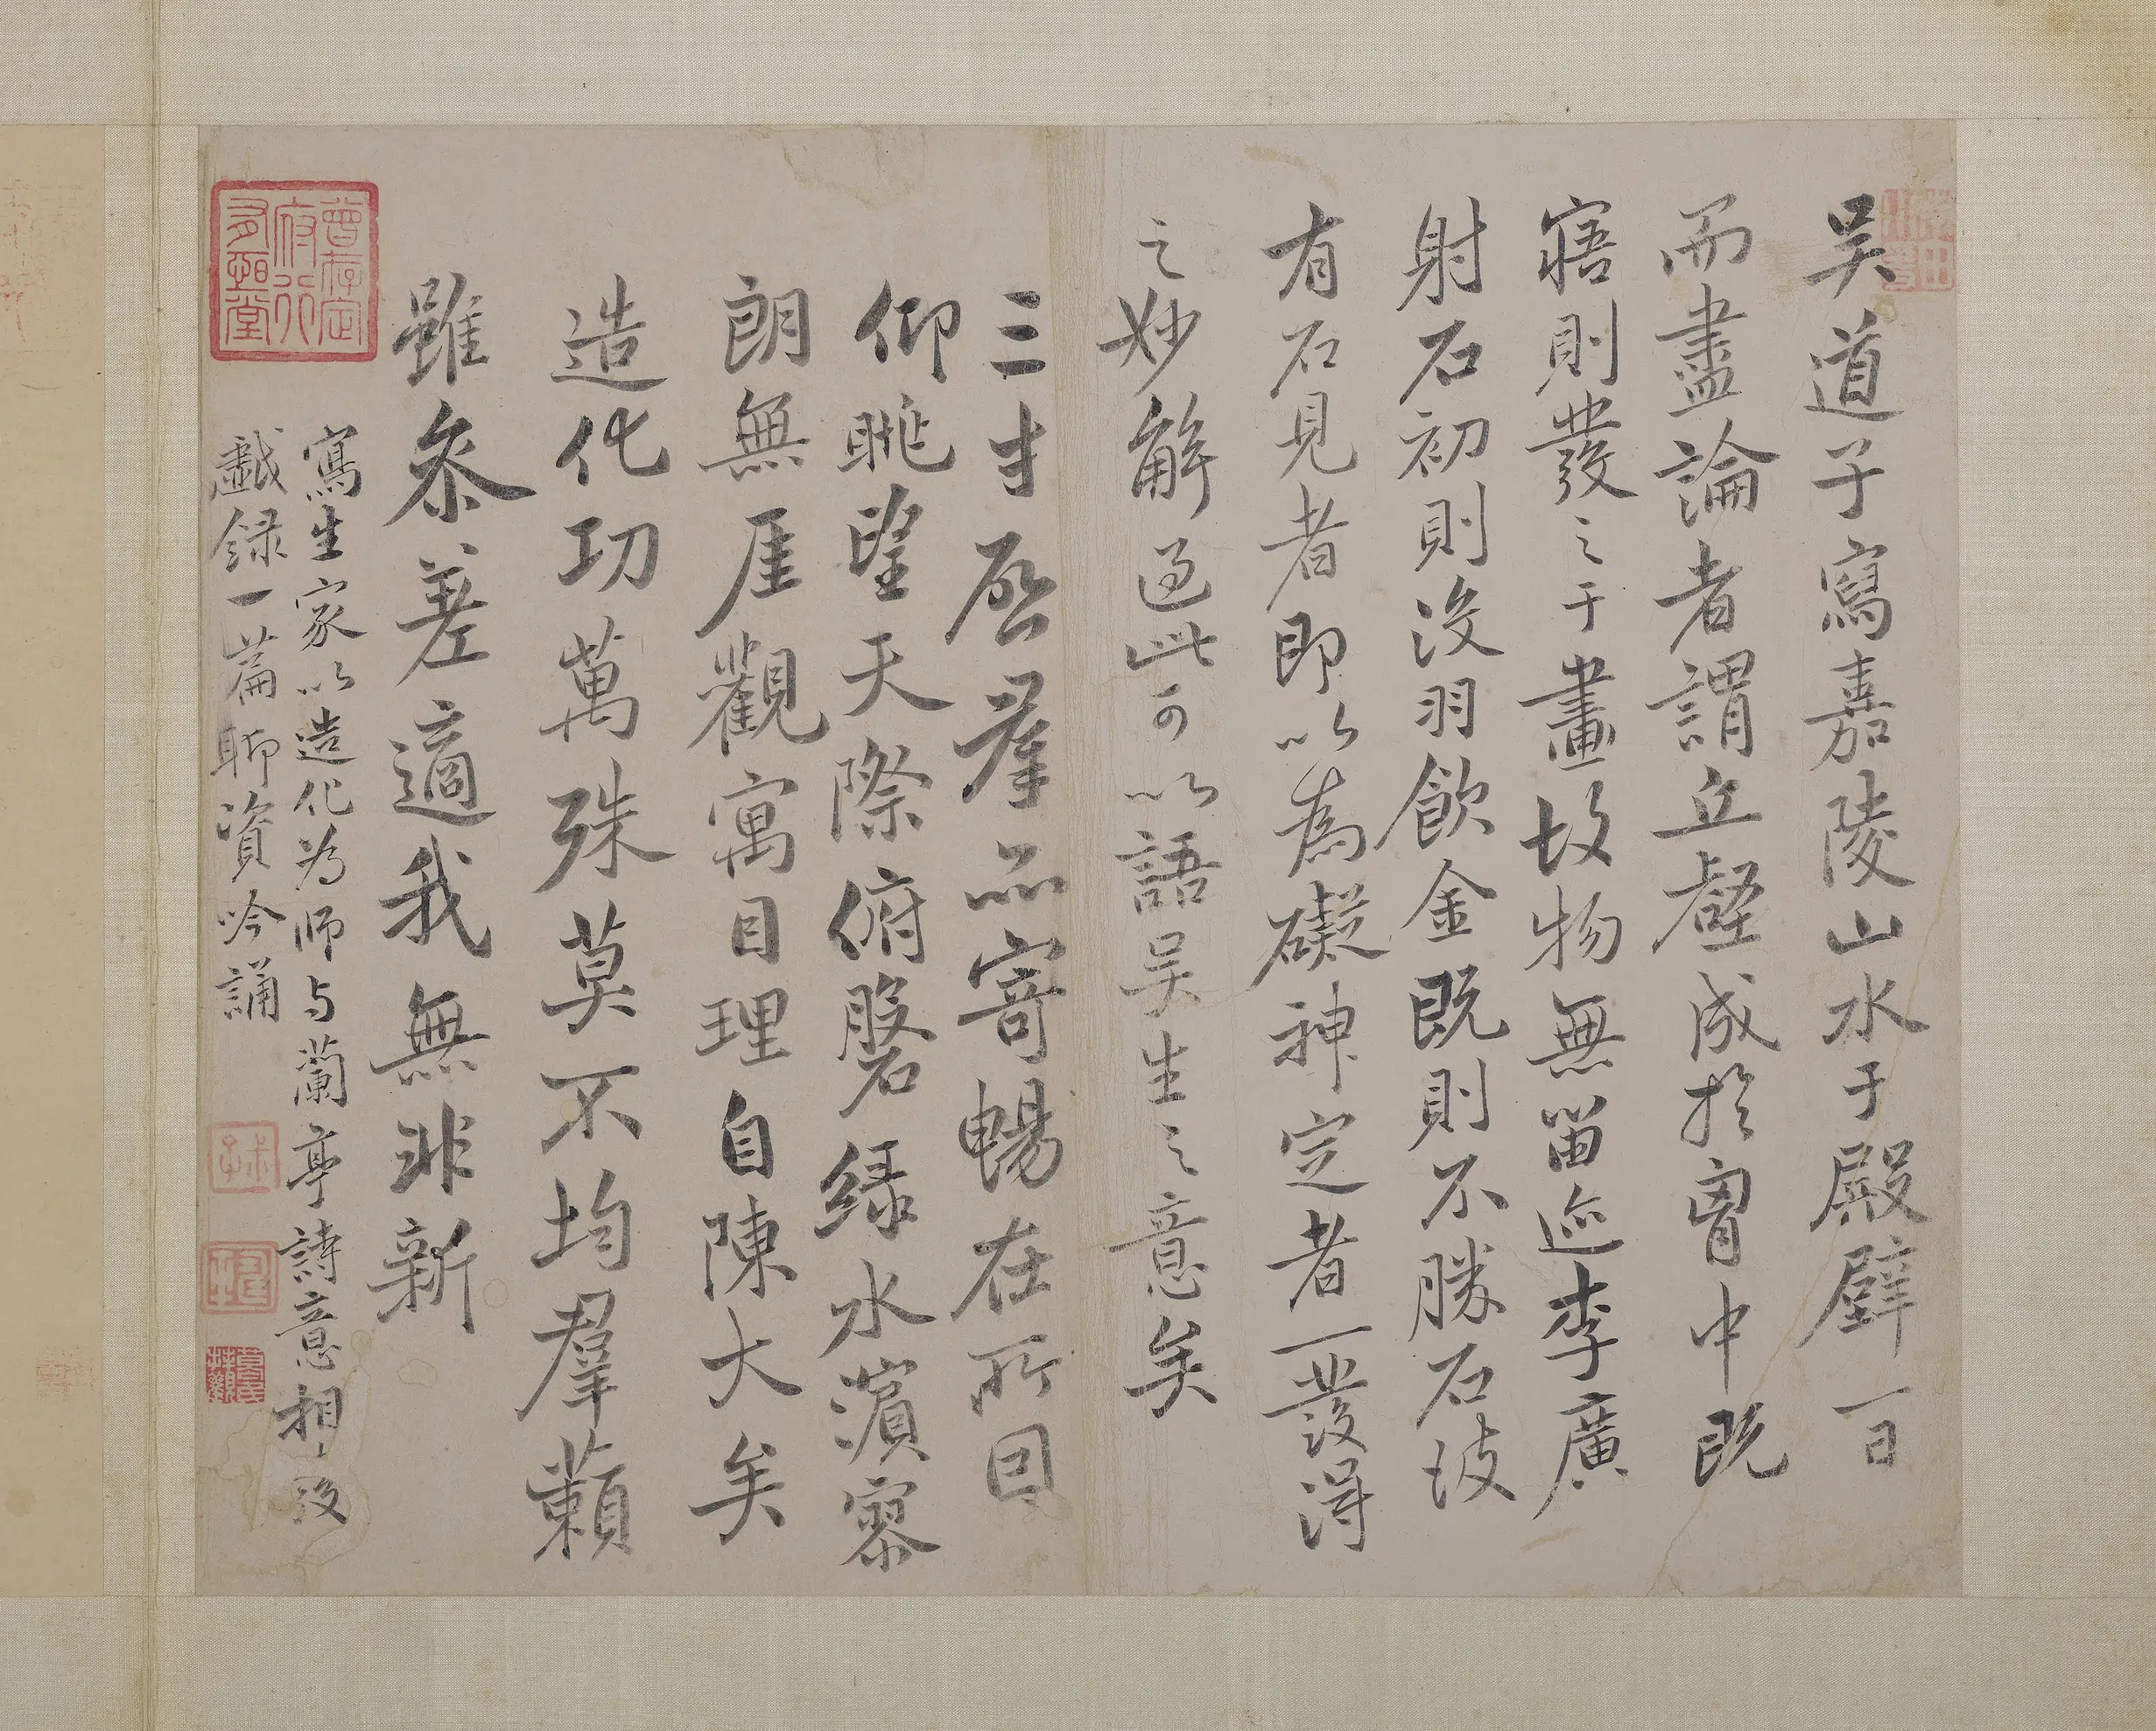 吴道子寫嘉陵山水于殿壁一日
而盡論者謂丘壑成於胷中既
寤則發之于畫故物無畱迹李廣
射石初則没羽飲金既則不勝石故
有石見者即以為礙神定者一發得
之妙解過此可以語吴生之意矣
三才啓羣品寄暢在所因
仰眺望天際俯磐緑水濵寥
朗無厓觀寓目理自陳大矣
造化功萬殊莫不均羣藾
雖叅差適我無非新
寫生家以造化為師与蘭亭詩意相次
戲録一篇聊資吟誦
曾存定
府行
有恒堂